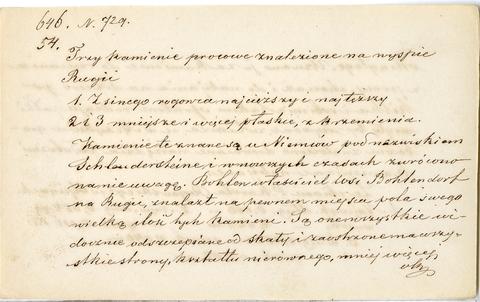 646. N. 729.
54.
Trzy kamienie procowe znalezione na wyspie
Rugii
1. Z sinego rogowca najcięższy i najtęższy
2 i 3 mniejsze i więcej płaskie, z krzemienia.
Kamienie te znane są u Niemców pod nazwiskiem
Schleudersteine, i w nowszych czasach zwrócono
na nie uwagę. Bohlen właściciel wsi Bohlendorf
na Rugii, znalazł na pewnem miejscu pola swego
wielką ilość tych kamieni. Są one wszystkie wi-
docznie odszczepiane od skały i zaostrzone na wszy-
stkie strony, kształtu nierównego, mniej więcej